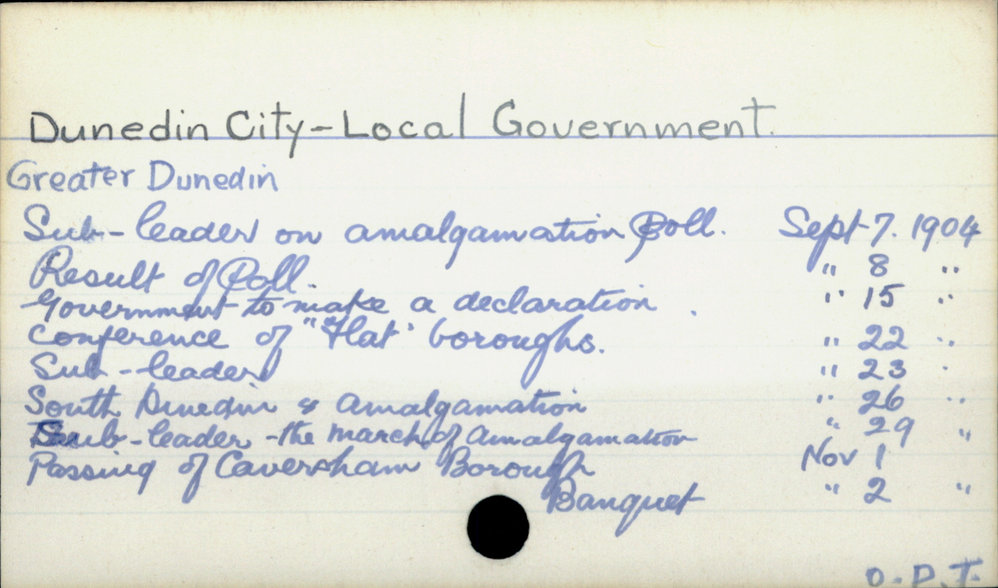 Dunedin City - Local Government.
Greater Dunedin
Sub-leader on amalgamation Poll. Sept 7. 1904
Result of Poll. " 8 "
Government to make a declaration. " 15 "
Conference of "Flat" boroughs. " 22 "
Sub-leader " 23 "
South Dunedin & Amalgamation " 26 "
Sub-leader - the march of Amalgamation " 29 "
Passing of Caversham Borough Nov 1
Banquet " 2 "
O.D.T.